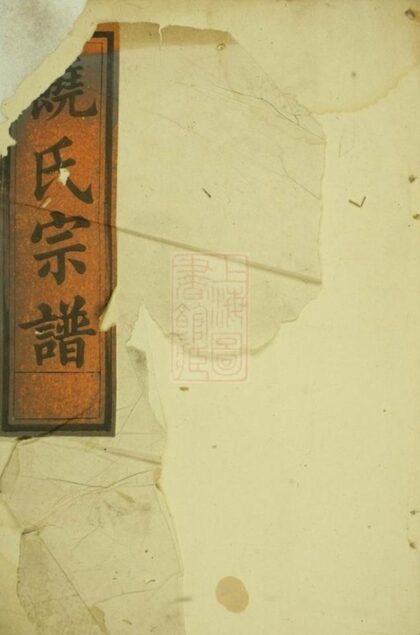 饒氏宗譜
上海圖書館藏